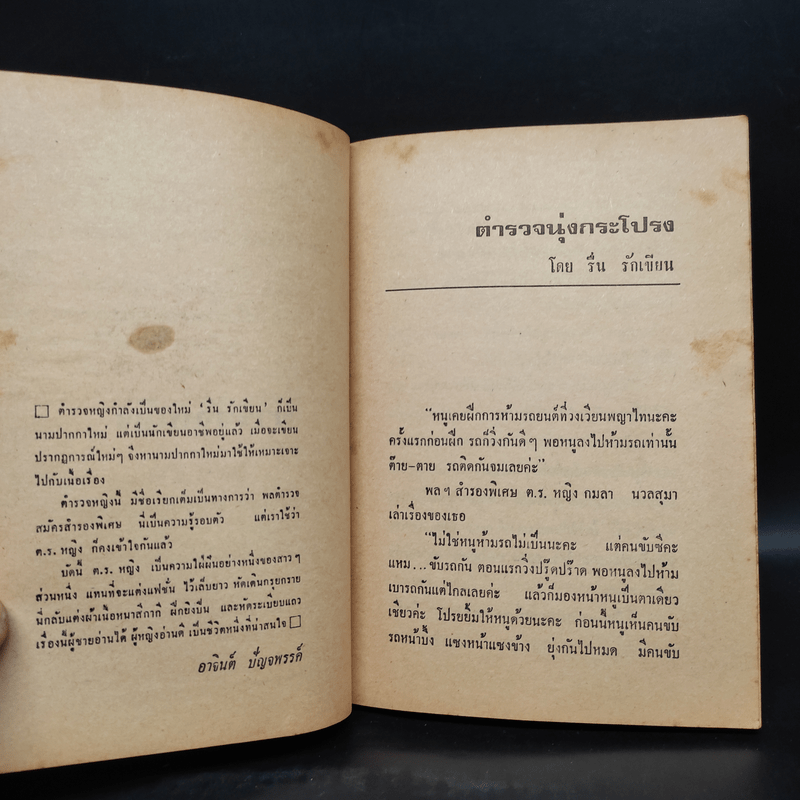 ☐ ตำรวจหญิงกำลังเป็นของใหม่ ‘รื่น รักเขียน’ ก็เป็น
นามปากกาใหม่ แต่เป็นนักเขียนอาชีพอยู่แล้ว เมื่อจะเขียน
ปรากฏการณ์ใหม่ๆ จึงหานามปากกาใหม่มาใช้ให้เหมาะเจาะ
ไปกับเนื้อเรื่อง
ตำรวจหญิงนี้ มีชื่อเรียกเต็มเป็นทางการว่า พลตำรวจ
สมัครสำรองพิเศษ นี่เป็นความรู้รอบตัว แต่เราใช้ว่า
ต.ร. หญิง ก็คงเข้าใจกันแล้ว
บัดนี้ ต.ร. หญิง เป็นความใฝ่ฝันอย่างหนึ่งของสาวๆ
ส่วนหนึ่ง แทนที่จะแต่งแฟชั่น ไว้เล็บยาว หัดเดินกรุยกราย
นี่กลับแต่งผ้าเนื้อหนาสีกากี ฝึกยิงปืน และหัดระเบียบแถว
เรื่องนี้ผู้ชายอ่านได้ ผู้หญิงอ่านดี เป็นชีวิตหนึ่งที่น่าสนใจ ☐
อาจินต์ ปัญจพรรค์
ตำรวจนุ่งกระโปรง
โดย รื่น รักเขียน
“หนูเคยฝึกการห้ามรถยนต์ที่วงเวียนพญาไทนะคะ
ครั้งแรกก่อนฝึก รถก็วิ่งกันดีๆ พอหนูลงไปห้ามรถเท่านั้น
ต๊าย-ตาย รถติดกันจมเลยค่ะ”
พลฯ สำรองพิเศษ ต.ร. หญิง กมลา นวลสุมา
เล่าเรื่องของเธอ
“ไม่ใช่หนูห้ามรถไม่เป็นนะคะ แต่คนขับซีคะ
แหม...ขับรถกัน ตอนแรกวิ่งปรู๊ดปร๊าด พอหนูลงไปห้าม
เบารถกันแต่ไกลเลยค่ะ แล้วก็มองหน้าหนูเป็นตาเดียว
เชียวค่ะ โปรยยิ้มให้หนูด้วยนะคะ ก่อนนี้หนูเห็นคนขับ
รถหน้าบึ้ง แซงหน้าแซงข้าง ยุ่งกันไปหมด มีคนขับ